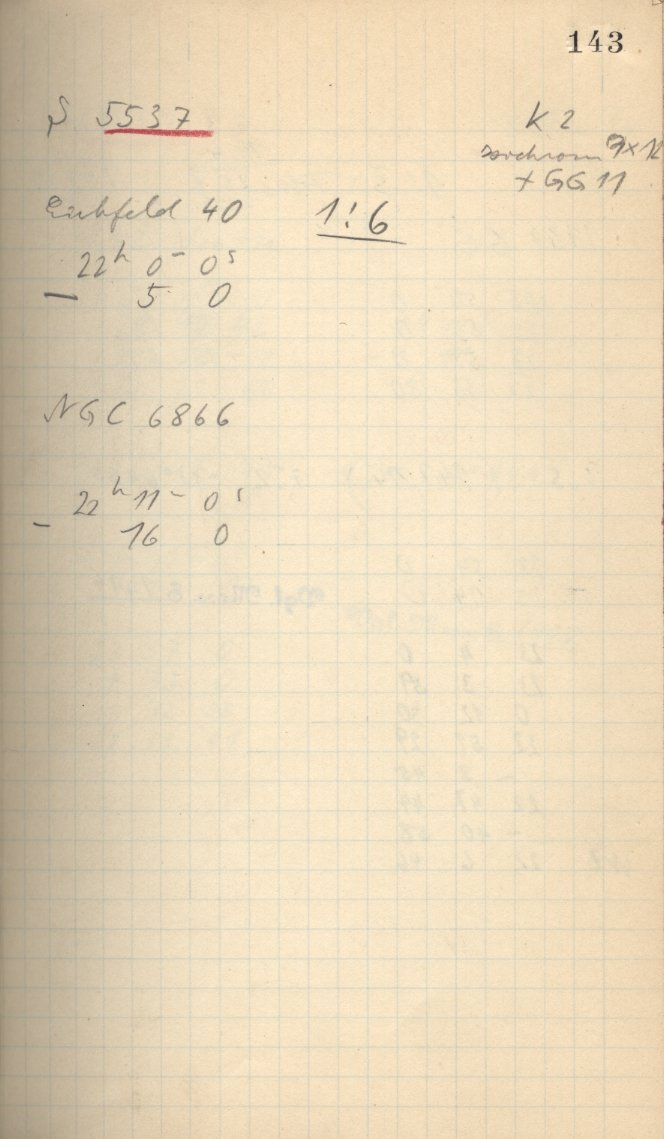 143
S 5537
K 2
Isochrom 9x12
+ GG 11
Eichfeld 40 1:6
22h 0m 0s
— 5 0
NGC 6866
22h 11m 0s
– 16 0